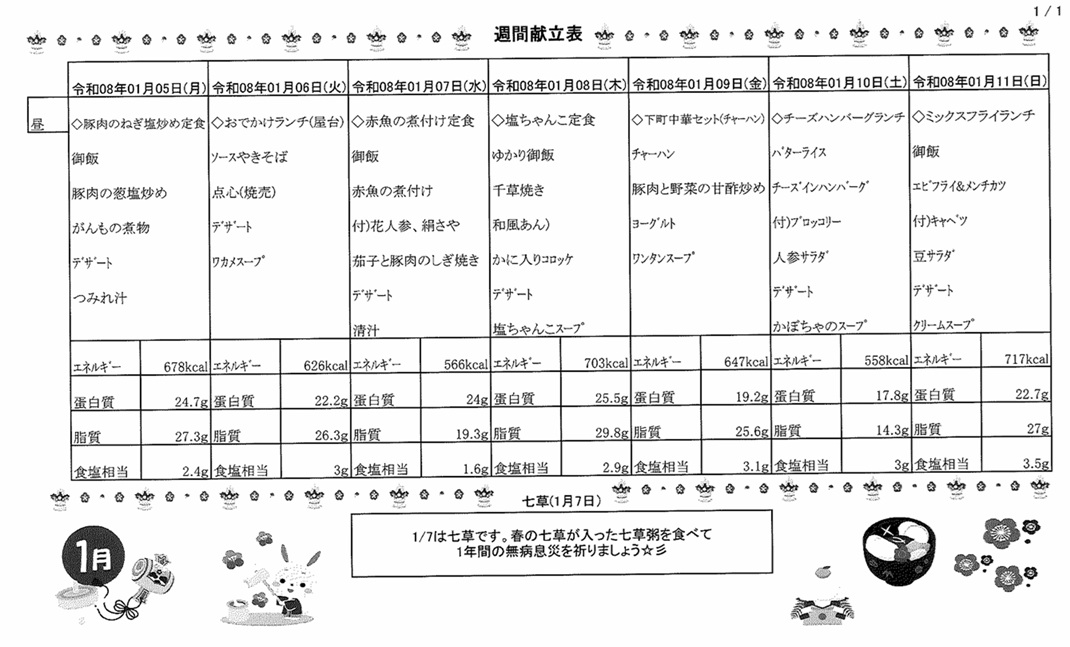 1/1
週間献立表
令和08年01月05日(月) 令和08年01月06日(火) 令和08年01月07日(水) 令和08年01月08日(木) 令和08年01月09日(金) 令和08年01月10日(土) 令和08年01月11日(日)
昼 ◇豚肉のねぎ塩炒め定食 ◇おでかけランチ(屋台) ◇赤魚の煮付け定食 ◇塩ちゃんこ定食 ◇下町中華セット(チャーハン) ◇チーズハンバーグランチ ◇ミックスフライランチ
御飯 ソースやきそば 御飯 ゆかり御飯 チャーハン バターライス 御飯
豚肉の葱塩炒め 点心(焼売) 赤魚の煮付け 千草焼き 豚肉と野菜の甘酢炒め チーズインハンバーグ エビフライ&メンチカツ
がんもの煮物 デザート 付)花人参、絹さや 和風あん) ヨーグルト 付)ブロッコリー 付)キャベツ
デザート ワカメスープ 茄子と豚肉のしぎ焼き かに入りコロッケ ワンタンスープ 人参サラダ 豆サラダ
つみれ汁 デザート デザート デザート デザート
清汁 塩ちゃんこスープ かぼちゃのスープ クリームスープ
エネルギー 678kcal エネルギー 626kcal エネルギー 566kcal エネルギー 703kcal エネルギー 647kcal エネルギー 558kcal エネルギー 717kcal
蛋白質 24.7g 蛋白質 22.2g 蛋白質 24g 蛋白質 25.5g 蛋白質 19.2g 蛋白質 17.8g 蛋白質 22.7g
脂質 27.3g 脂質 26.3g 脂質 19.3g 脂質 29.8g 脂質 25.6g 脂質 14.3g 脂質 27g
食塩相当 2.4g 食塩相当 3g 食塩相当 1.6g 食塩相当 2.9g 食塩相当 3.1g 食塩相当 3g 食塩相当 3.5g
七草(1月7日)
1/7は七草です。春の七草が入った七草粥を食べて
1年間の無病息災を祈りましょう☆彡
1月